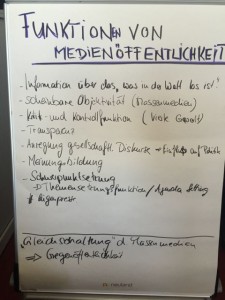 FUNKTIONEN VON
MEDIENÖFFENTLICHKEIT
- Information über das, was in da Welt los ist!
- scheinbare Objektivität (Massenmedien)
- Kritik- und Kontrollfunktion (Vierte Gewalt)
- Transparenz
- Anregung gesellschaftl. Diskurse → Einfluß auf Politik
- Meinungsbildung
- Schwerpunktsetzung
→ Themensetzungsfunktion / Agenda
„Gleichschaltung" d. Massenmedien
⇒ Gegenöffentlichkeit